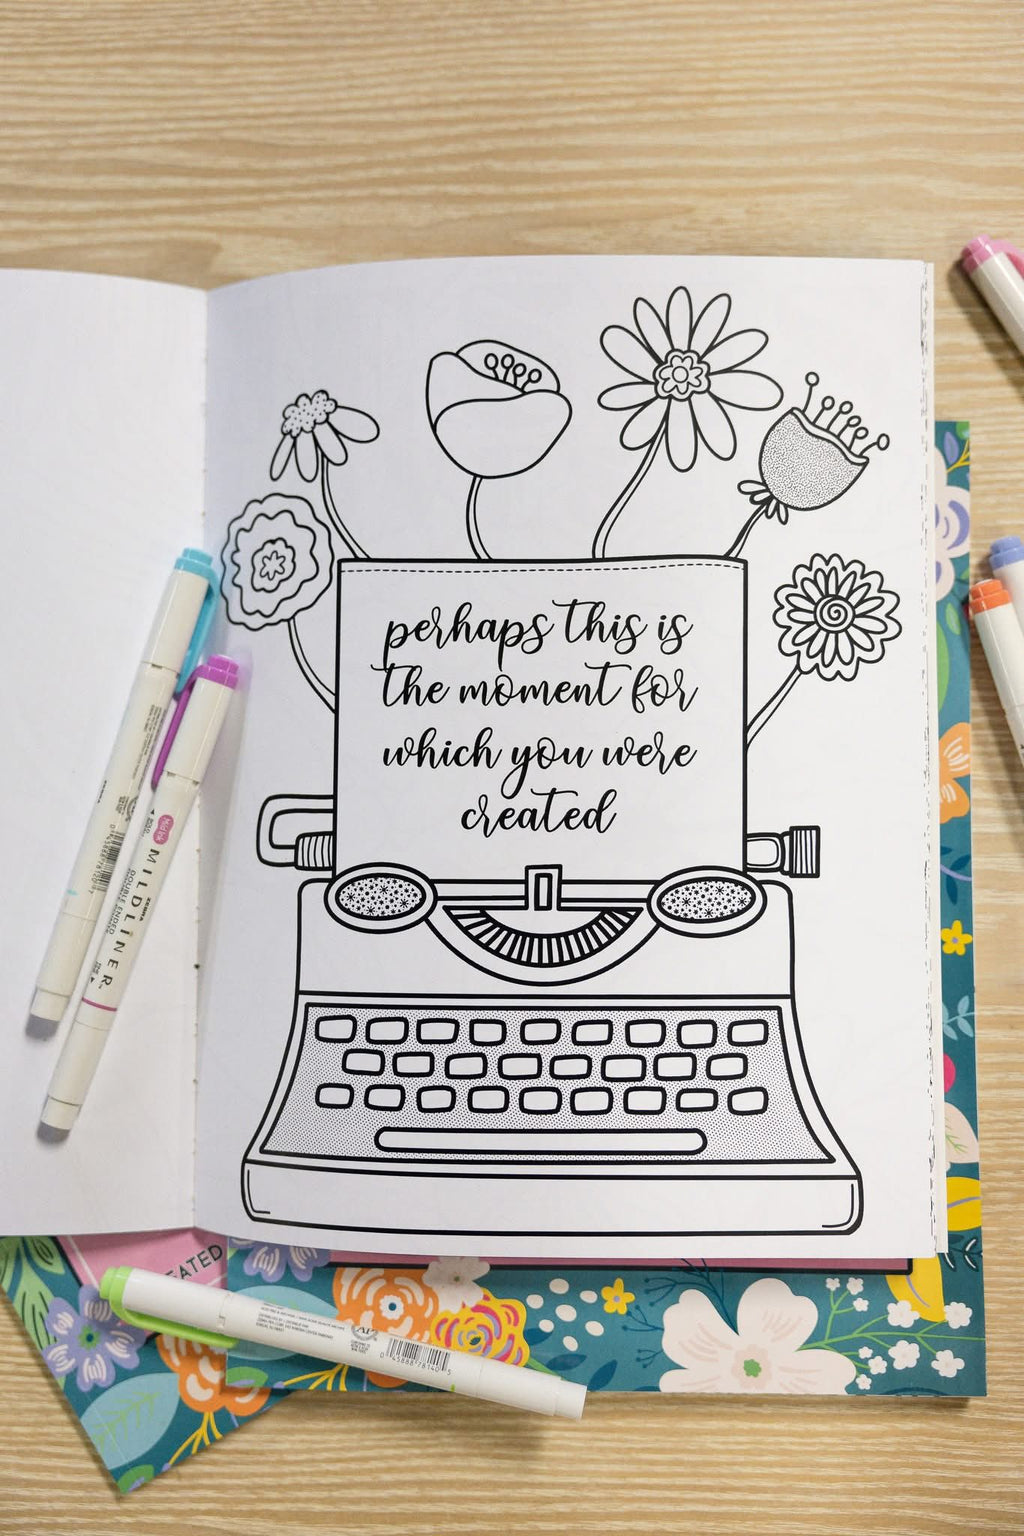 perhaps this is
the moment for
which you were
created
ZEBRA
MILDLINER
DOUBLE ENDED
EATED